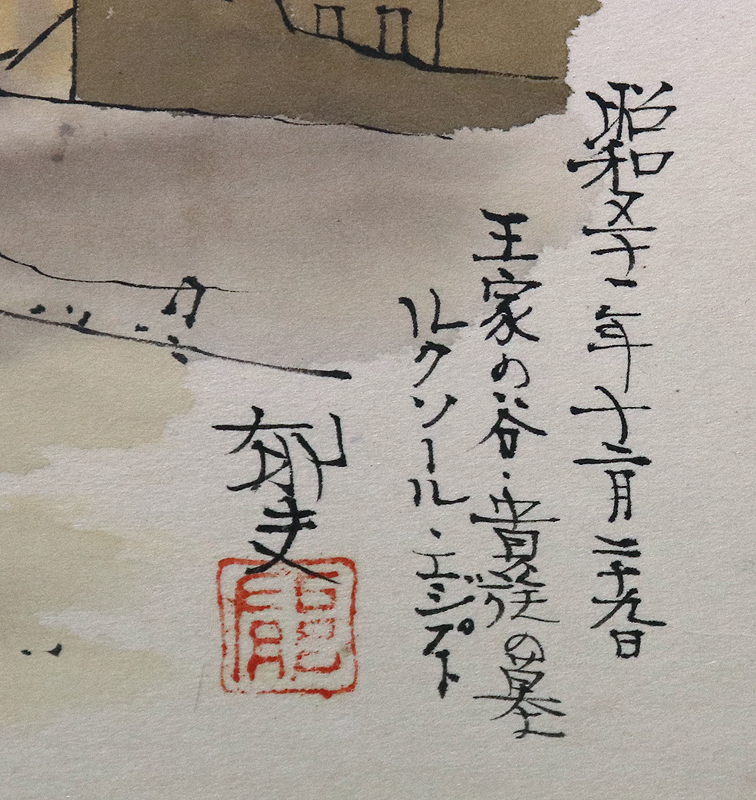 昭和五十一年十二月二十九日
王家の谷・貴族の墓
ルクソール・エジプト
郁夫